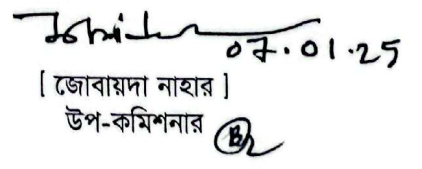 07.01.25
[ জোবায়দা নাহার ]
উপ-কমিশনার